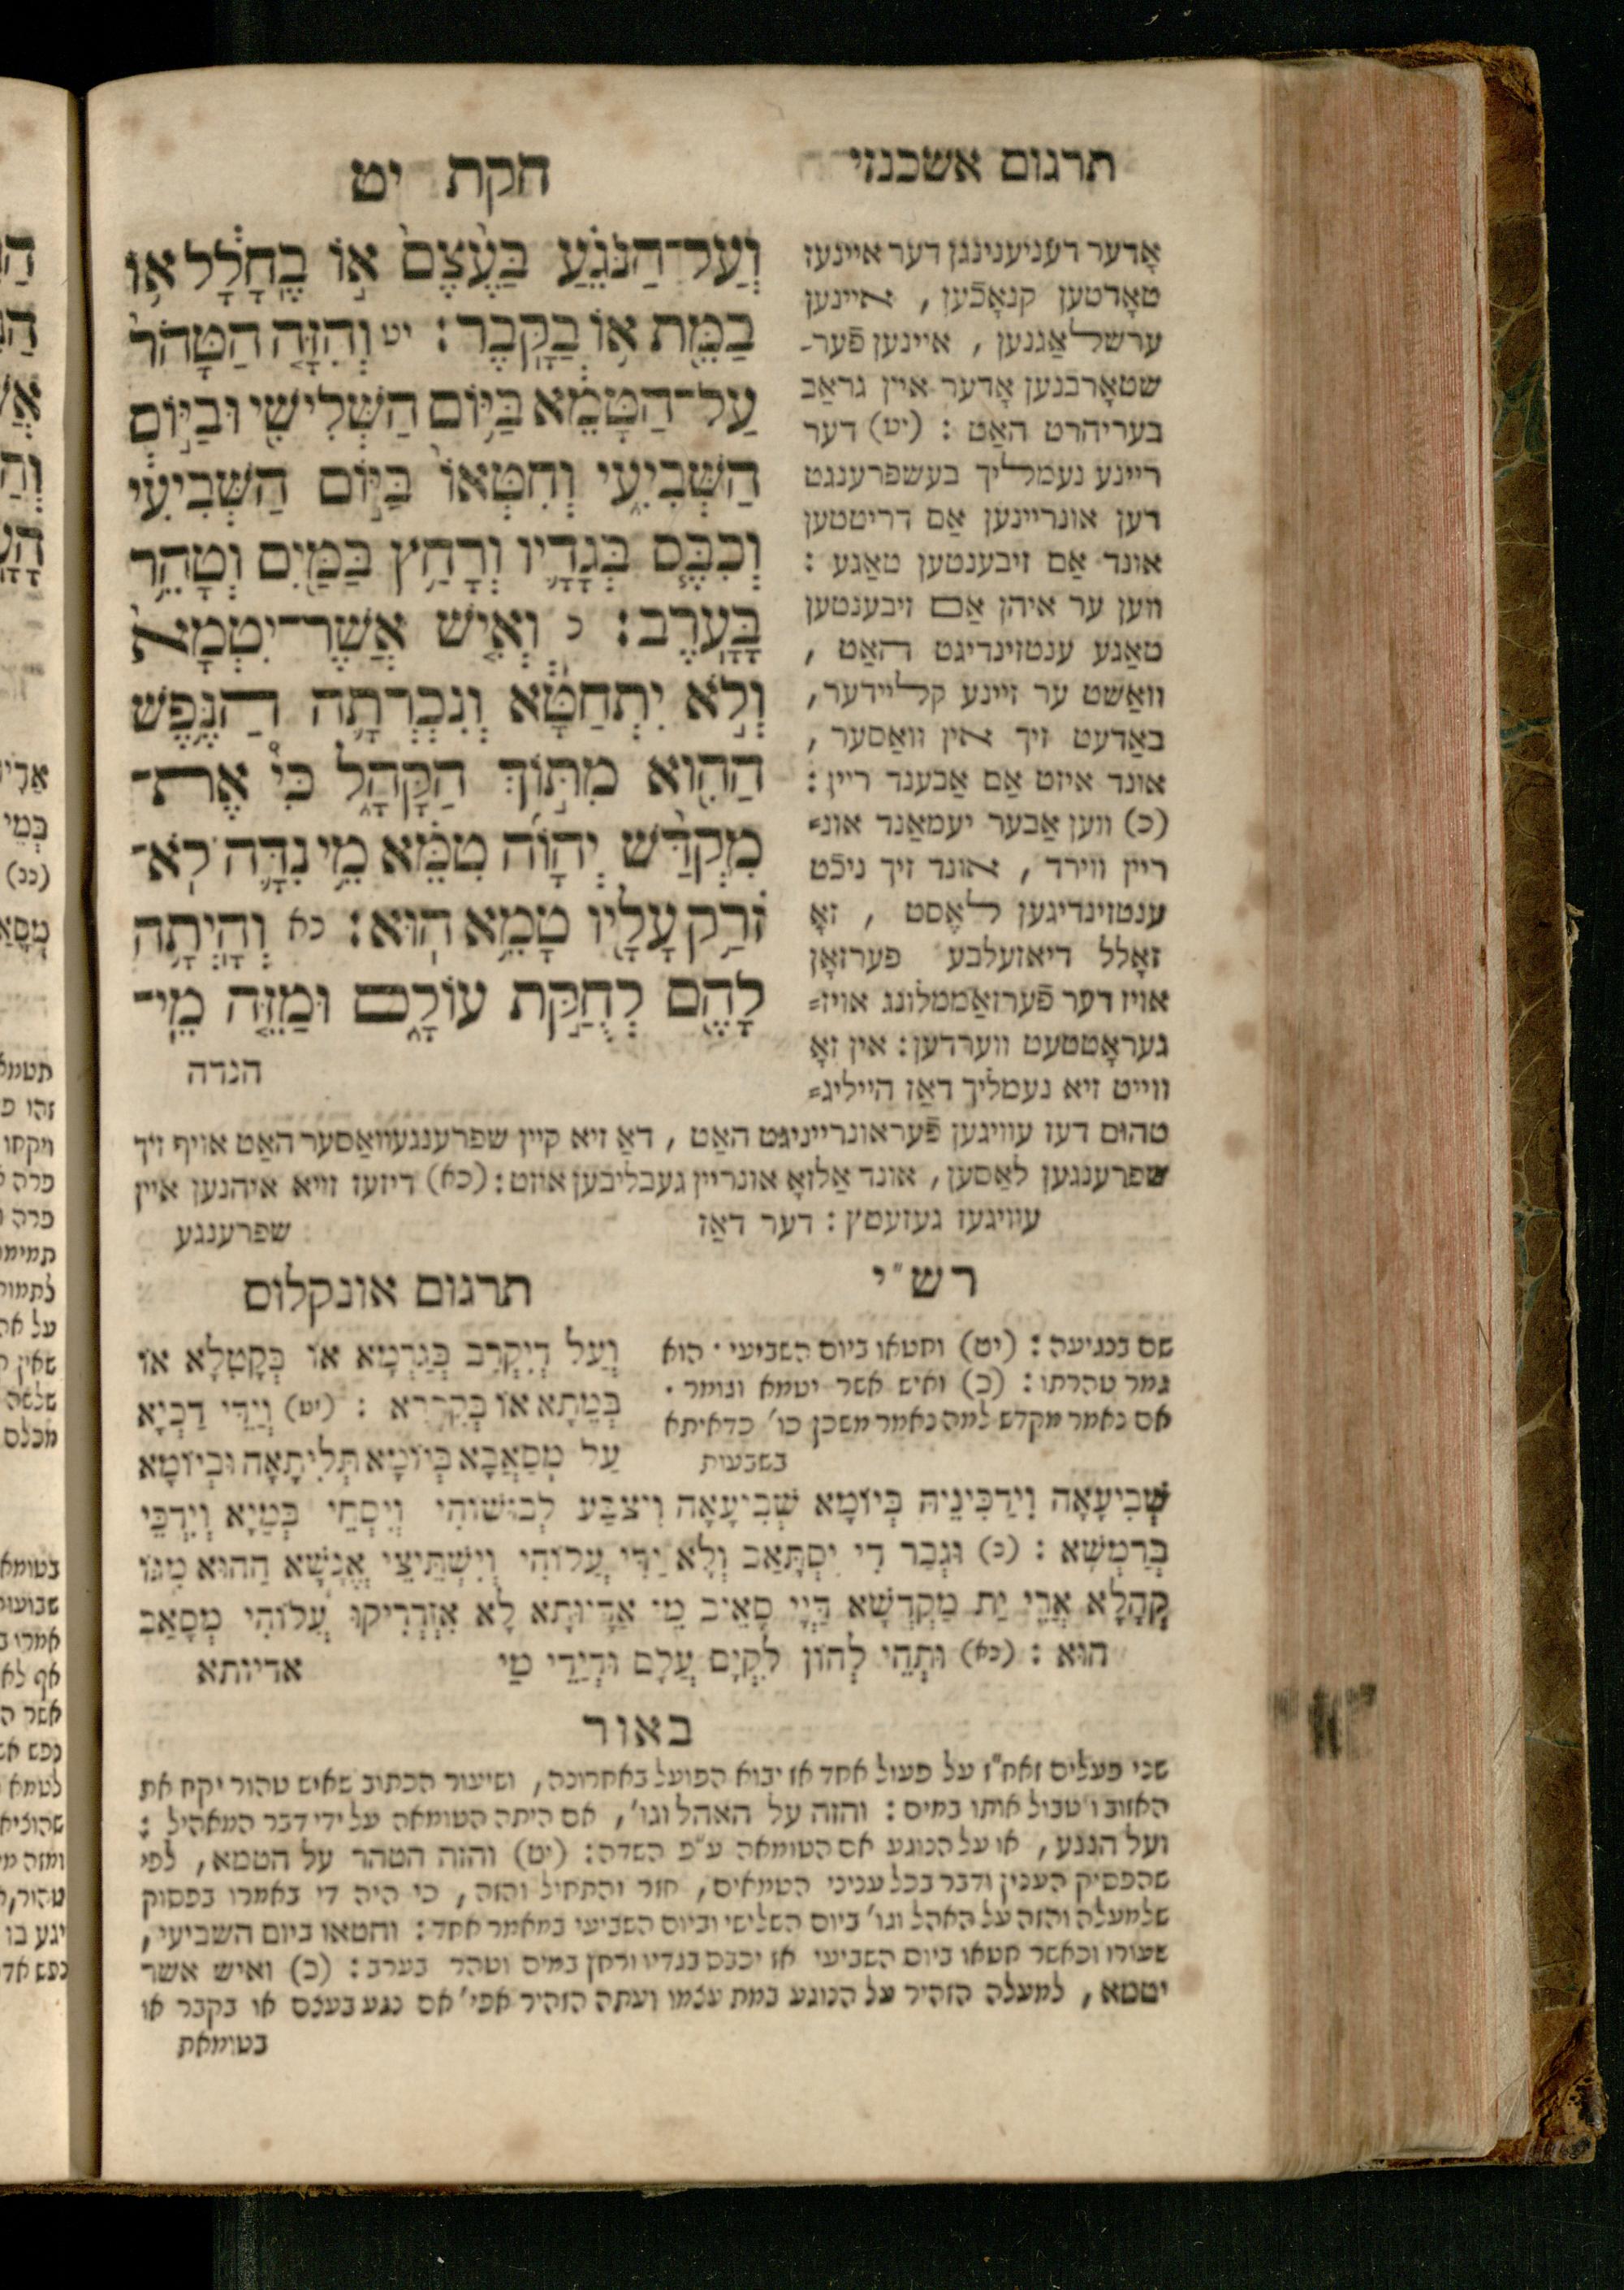 תרגום אשכנזי
חקת יט
וְעַל־הַנֹּגֵ֗עַ בַּעֶ֙צֶם֙ א֣וֹ בֶֽחָלָ֔ל א֥וֹ
בַמֵּ֖ת א֥וֹ בַקָּֽבֶר׃ יט וְהִזָּ֤ה הַטָּהֹר֙
עַל־הַטָּמֵ֔א בַּיּ֥וֹם הַשְּׁלִישִׁ֖י וּבַיּ֣וֹם
הַשְּׁבִיעִ֑י וְחִטְּאוֹ֙ בַּיּ֣וֹם הַשְּׁבִיעִ֔י
וְכִבֶּ֧ס בְּגָדָ֛יו וְרָחַ֥ץ בַּמַּ֖יִם וְטָהֵ֥ר
בָּעָֽרֶב׃ כ וְאִ֤ישׁ אֲשֶׁר־יִטְמָא֙
וְלֹ֣א יִתְחַטָּ֔א וְנִכְרְתָ֛ה הַנֶּ֥פֶשׁ
הַהִ֖וא מִתּ֣וֹךְ הַקָּהָ֑ל כִּי֩ אֶת־
מִקְדַּ֨שׁ יְהוָ֜ה טִמֵּ֗א מֵ֥י נִדָּ֛ה לֹא־
זֹרַ֥ק עָלָ֖יו טָמֵ֥א הֽוּא׃ כא וְהָיְתָ֥ה
לָהֶ֖ם לְחֻקַּ֣ת עוֹלָ֑ם וּמַזֵּ֤ה מֵֽי־
הנדה
אָדער דעניענינגן דער איינעז
טאָדטען קנאָכֿען, איינען
ערשלאַגנען, איינען פֿער־
שטאָרבנען אָדער איין גראַב
בעריהרט האַט: (יט) דער
ריינע נעמליך בעשפרענגט
דען אונריינען אַם דריטטען
אונד אַם זיבענטען טאַגע:
ווען ער איהן אַם זיבענטען
טאַגע ענטזינדיגט האַט,
וואַשט ער זיינע קליידער,
באַדעט זיך אין וואַסער,
אונד איזט אַם אַבענד ריין:
(כ) ווען אַבער יעמאַנד אונ=
ריין ווירד, אונד זיך ניכֿט
ענטזינדיגען לאֶסט, זאָ
זאָלל דיאזעלבע פערזאָן
אויז דער פֿערזאַממלונג אויז=
געראָטטעט ווערדען: אין זאָ
ווייט זיא נעמליך דאַז הייליג=
טהום דעז עוויגען פֿעראונרייניגט האַט, דאַ זיא קיין שפרענגעוואַסער האַט אויף זיך
שפרענגען לאַסען, אונד אַלזאָ אונריין געבליבען איזט: (כא) דיזעז זויא איהנען איין
עוויגעז געזעטץ: דער דאַז
שפרענגע
רש"י
שם בנגיעה: (יט) וחטאו ביום השביעי. הוא
גמר טהרתו: (כ) ואיש אשר יטמא וגומר.
אם נאמר מקדש למה נאמר משכן כו' כדאיתא
בשבעות
תרגום אונקלוס
וְעַל דְּיִקְרֵב בְּגַרְמָא אוֹ בְּקָטְלָא אוֹ
בְּמֵתָא אוֹ בְקִבְרָא: (יט) וְיַדֵּי דַכְיָא
עַל מְסַאֲבָא בְּיוֹמָא תְּלִיתָאָה וּבְיוֹמָא
שְׁבִיעָאָה וִידַכִּינֵיהּ בְּיוֹמָא שְׁבִיעָאָה וִיצַבַּע לְבוּשׁוֹהִי וְיִסְחֵי בְּמַיָּא וְיִדְכֵּי
בְּרַמְשָׁא: (כ) וּגְבַר דִּי יִסְתָּאַב וְלָא יַדֵּי עֲלוֹהִי וְיִשְׁתֵּיצֵי אֱנָשָׁא הַהוּא מִגּוֹ
קְהָלָא אֲרֵי יַת מַקְדְּשָׁא דַּיְיָ סָאֵיב מֵי אַדָּיוּתָא לָא אִזְדְּרִיקוּ עֲלוֹהִי מְסָאַב
הוּא: (כא) וּתְהֵי לְהוֹן לִקְיָם עֲלָם וּדְיַדֵּי מֵי
אדיותא
באור
שני פעלים זאח"ז על פעול אחד אז יבוא הפועל באחרונה, ושיעור הכתוב שאיש טהור יקח את
האזוב ויטבול אותו במים: והזה על האהל וגו', אם היתה הטומאה על ידי דבר המאהיל:
ועל הנגע, או על הנוגע אם הטומאה ע"פ השדה: (יט) והזה הטהר על הטמא, לפי
שהפסיק הענין ודבר בכל עניני הטמאים, חזר והתחיל והזה, כי היה די באמרו בפסוק
שלמעלה והזה על האהל וגו' ביום השלישי וביום השביעי במאמר אחד: וחטאו ביום השביעי,
שעורו וכאשר חטאו ביום השביעי אז יכבס בגדיו ורחץ במים וטהר בערב: (כ) ואיש אשר
יטמא, למעלה הזהיר על הנוגע במת עצמו ועתה הזהיר אפי' אם נגע בעצם או בקבר או
בטומאת